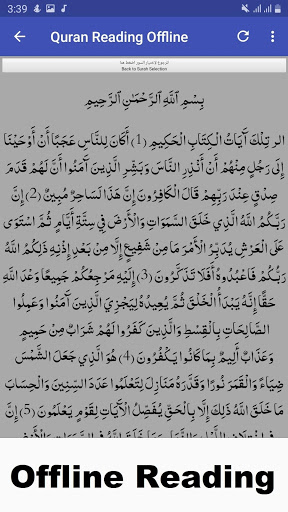 3:39
Quran Reading Offline
Back to Surah Selection
بِسْمِ ٱللَّهِ ٱلرَّحْمَٰنِ ٱلرَّحِيمِ
الر تِلْكَ آيَاتُ الْكِتَابِ الْحَكِيمِ (1) أَكَانَ لِلنَّاسِ عَجَبًا أَنْ أَوْحَيْنَا
إِلَى رَجُلٍ مِنْهُمْ أَنْ أَنْذِرِ النَّاسَ وَبَشِّرِ الَّذِينَ آمَنُوا أَنَّ لَهُمْ قَدَمَ
صِدْقٍ عِنْدَ رَبِّهِمْ قَالَ الْكَافِرُونَ إِنَّ هَذَا لَسَاحِرٌ مُبِينٌ (2) إِنَّ
رَبَّكُمُ اللَّهُ الَّذِي خَلَقَ السَّمَوَاتِ وَالْأَرْضَ فِي سِتَّةِ أَيَّامٍ ثُمَّ اسْتَوَى
عَلَى الْعَرْشِ يُدَبِّرُ الْأَمْرَ مَا مِنْ شَفِيعٍ إِلَّا مِنْ بَعْدِ إِذْنِهِ ذَلِكُمُ اللَّهُ
رَبُّكُمْ فَاعْبُدُوهُ أَفَلَا تَذَكَّرُونَ (3) إِلَيْهِ مَرْجِعُكُمْ جَمِيعًا وَعْدَ اللَّهِ
حَقًّا إِنَّهُ يَبْدَأُ الْخَلْقَ ثُمَّ يُعِيدُهُ لِيَجْزِيَ الَّذِينَ آمَنُوا وَعَمِلُوا
الصَّالِحَاتِ بِالْقِسْطِ وَالَّذِينَ كَفَرُوا لَهُمْ شَرَابٌ مِنْ حَمِيمٍ
وَعَذَابٌ أَلِيمٌ بِمَا كَانُوا يَكْفُرُونَ (4) هُوَ الَّذِي جَعَلَ الشَّمْسَ
ضِيَاءً وَالْقَمَرَ نُورًا وَقَدَّرَهُ مَنَازِلَ لِتَعْلَمُوا عَدَدَ السِّنِينَ وَالْحِسَابَ
مَا خَلَقَ اللَّهُ ذَلِكَ إِلَّا بِالْحَقِّ يُفَصِّلُ الْآيَاتِ لِقَوْمٍ يَعْلَمُونَ (5) إِنَّ
Offline Reading